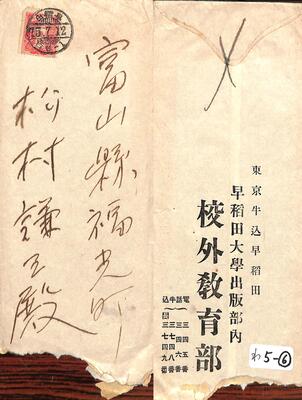 15.7.12
富山縣福光町
松村謙三殿
東京牛込早稲田
早稲田大學出版部內
校外教育部
電話牛込
三四五番
三四六番
三七四八番
三七四九番
わ5-⑥